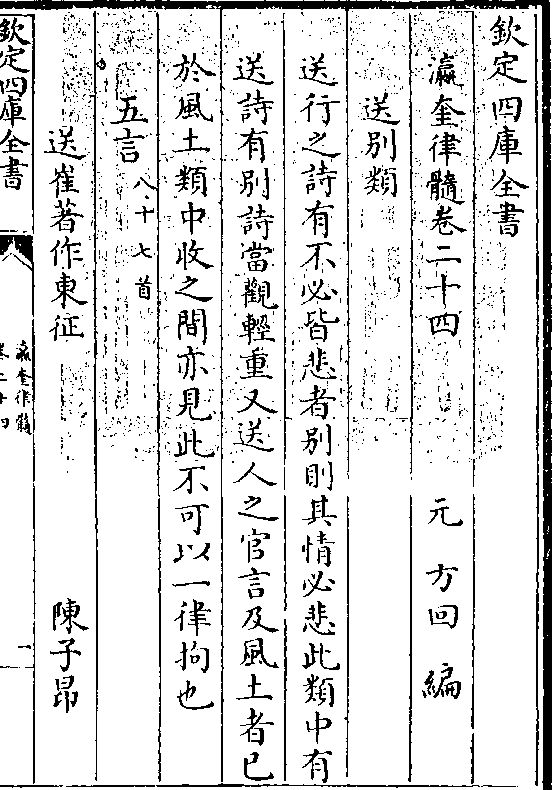 欽定四庫全書
瀛奎律髓卷二十四 元 方回 編
送別類
送行之詩有不必皆悲者别則其情必悲此類中有
送詩有別詩當觀輕重又送人之官言及風土者已
於風土類中收之間亦見此不可以一律拘也
五言八十七首
送崔著作東征 陳子昂
欽定四庫全書
瀛奎律髓
卷二十四
一